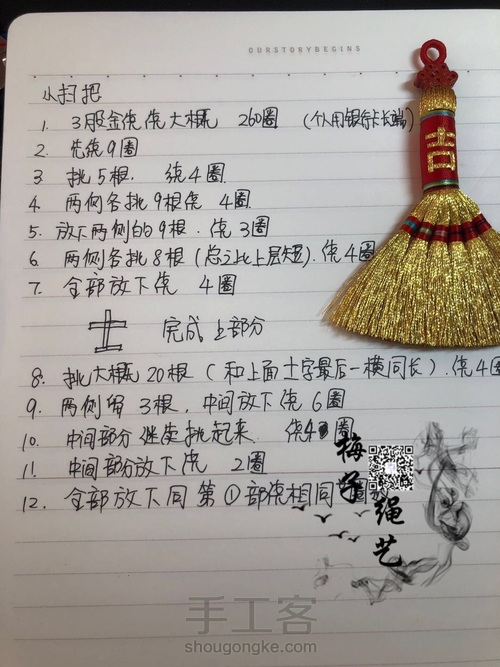 OURSTORYBEGINS
小扫把
1. 3股金线绕大概 260圈 (个人用银行卡长端)
2. 先绕9圈
3 挑5根. 绕4圈
4. 两侧各挑9根绕 4圈
5. 放下两侧的9根.绕3圈
6. 两侧各挑8根(总之比上层短).绕4圈
7. 全部放下绕 4圈
完成上部分
8. 挑大概20根(和上面土字最后一横同长).绕4圈
9. 两侧留3根,中间放下绕6圈
10. 中间部分继续挑起来. 绕4圈
11. 中间部分放下绕 2圈
12. 全部放下同第①部绕相同圈数
吉
梅子绳艺
手工客
shougongke.com